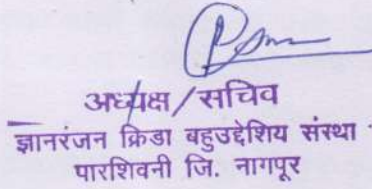 अध्यक्ष / सचिव
ज्ञानरंजन क्रिडा बहुउद्देशिय संस्था
पारशिवनी जि. नागपूर